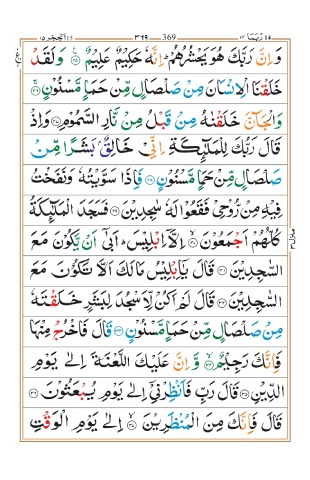 ربما ١٤ 369 ٣٦٩ الحجر ١٥
وَاِنَّ رَبَّكَ هُوَ يَحۡشُرُهُمۡ ؕ اِنَّهٗ حَكِيۡمٌ عَلِيۡمٌ ﴿۲۵﴾ وَلَقَدۡ
خَلَقۡنَا الۡاِنۡسَانَ مِنۡ صَلۡصَالٍ مِّنۡ حَمَاٍ مَّسۡنُوۡنٍ ﴿۲۶﴾
وَالۡجَآنَّ خَلَقۡنٰهُ مِنۡ قَبۡلُ مِنۡ نَّارِ السَّمُوۡمِ ﴿۲۷﴾ وَاِذۡ
قَالَ رَبُّكَ لِلۡمَلٰٓٮِٕكَةِ اِنِّىۡ خَالِـقٌۢ بَشَرًا مِّنۡ
صَلۡصَالٍ مِّنۡ حَمَاٍ مَّسۡنُوۡنٍ ﴿۲۸﴾ فَاِذَا سَوَّيۡتُهٗ وَنَفَخۡتُ
فِيۡهِ مِنۡ رُّوۡحِىۡ فَقَعُوۡا لَهٗ سٰجِدِيۡنَ ﴿۲۹﴾ فَسَجَدَ الۡمَلٰۤٮِٕكَةُ
كُلُّهُمۡ اَجۡمَعُوۡنَ ﴿۳۰﴾ اِلَّاۤ اِبۡلِيۡسَؕ اَبٰٓى اَنۡ يَّكُوۡنَ مَعَ
السّٰجِدِيۡنَ ﴿۳۱﴾ قَالَ يٰۤاِبۡلِيۡسُ مَا لَـكَ اَلَّا تَكُوۡنَ مَعَ
السّٰجِدِيۡنَ ﴿۳۲﴾ قَالَ لَمۡ اَكُنۡ لِّاَسۡجُدَ لِبَشَرٍ خَلَقۡتَهٗ
مِنۡ صَلۡصَالٍ مِّنۡ حَمَاٍ مَّسۡنُوۡنٍ ﴿۳۳﴾ قَالَ فَاخۡرُجۡ مِنۡهَا
فَاِنَّكَ رَجِيۡمٌۙ ﴿۳۴﴾ وَّاِنَّ عَلَيۡكَ اللَّعۡنَةَ اِلٰى يَوۡمِ
الدِّيۡنِ ﴿۳۵﴾ قَالَ رَبِّ فَاَنۡظِرۡنِىۡۤ اِلٰى يَوۡمِ يُبۡعَثُوۡنَ ﴿۳۶﴾
قَالَ فَاِنَّكَ مِنَ الۡمُنۡظَرِيۡنَۙ ﴿۳۷﴾ اِلٰى يَوۡمِ الۡوَقۡتِ